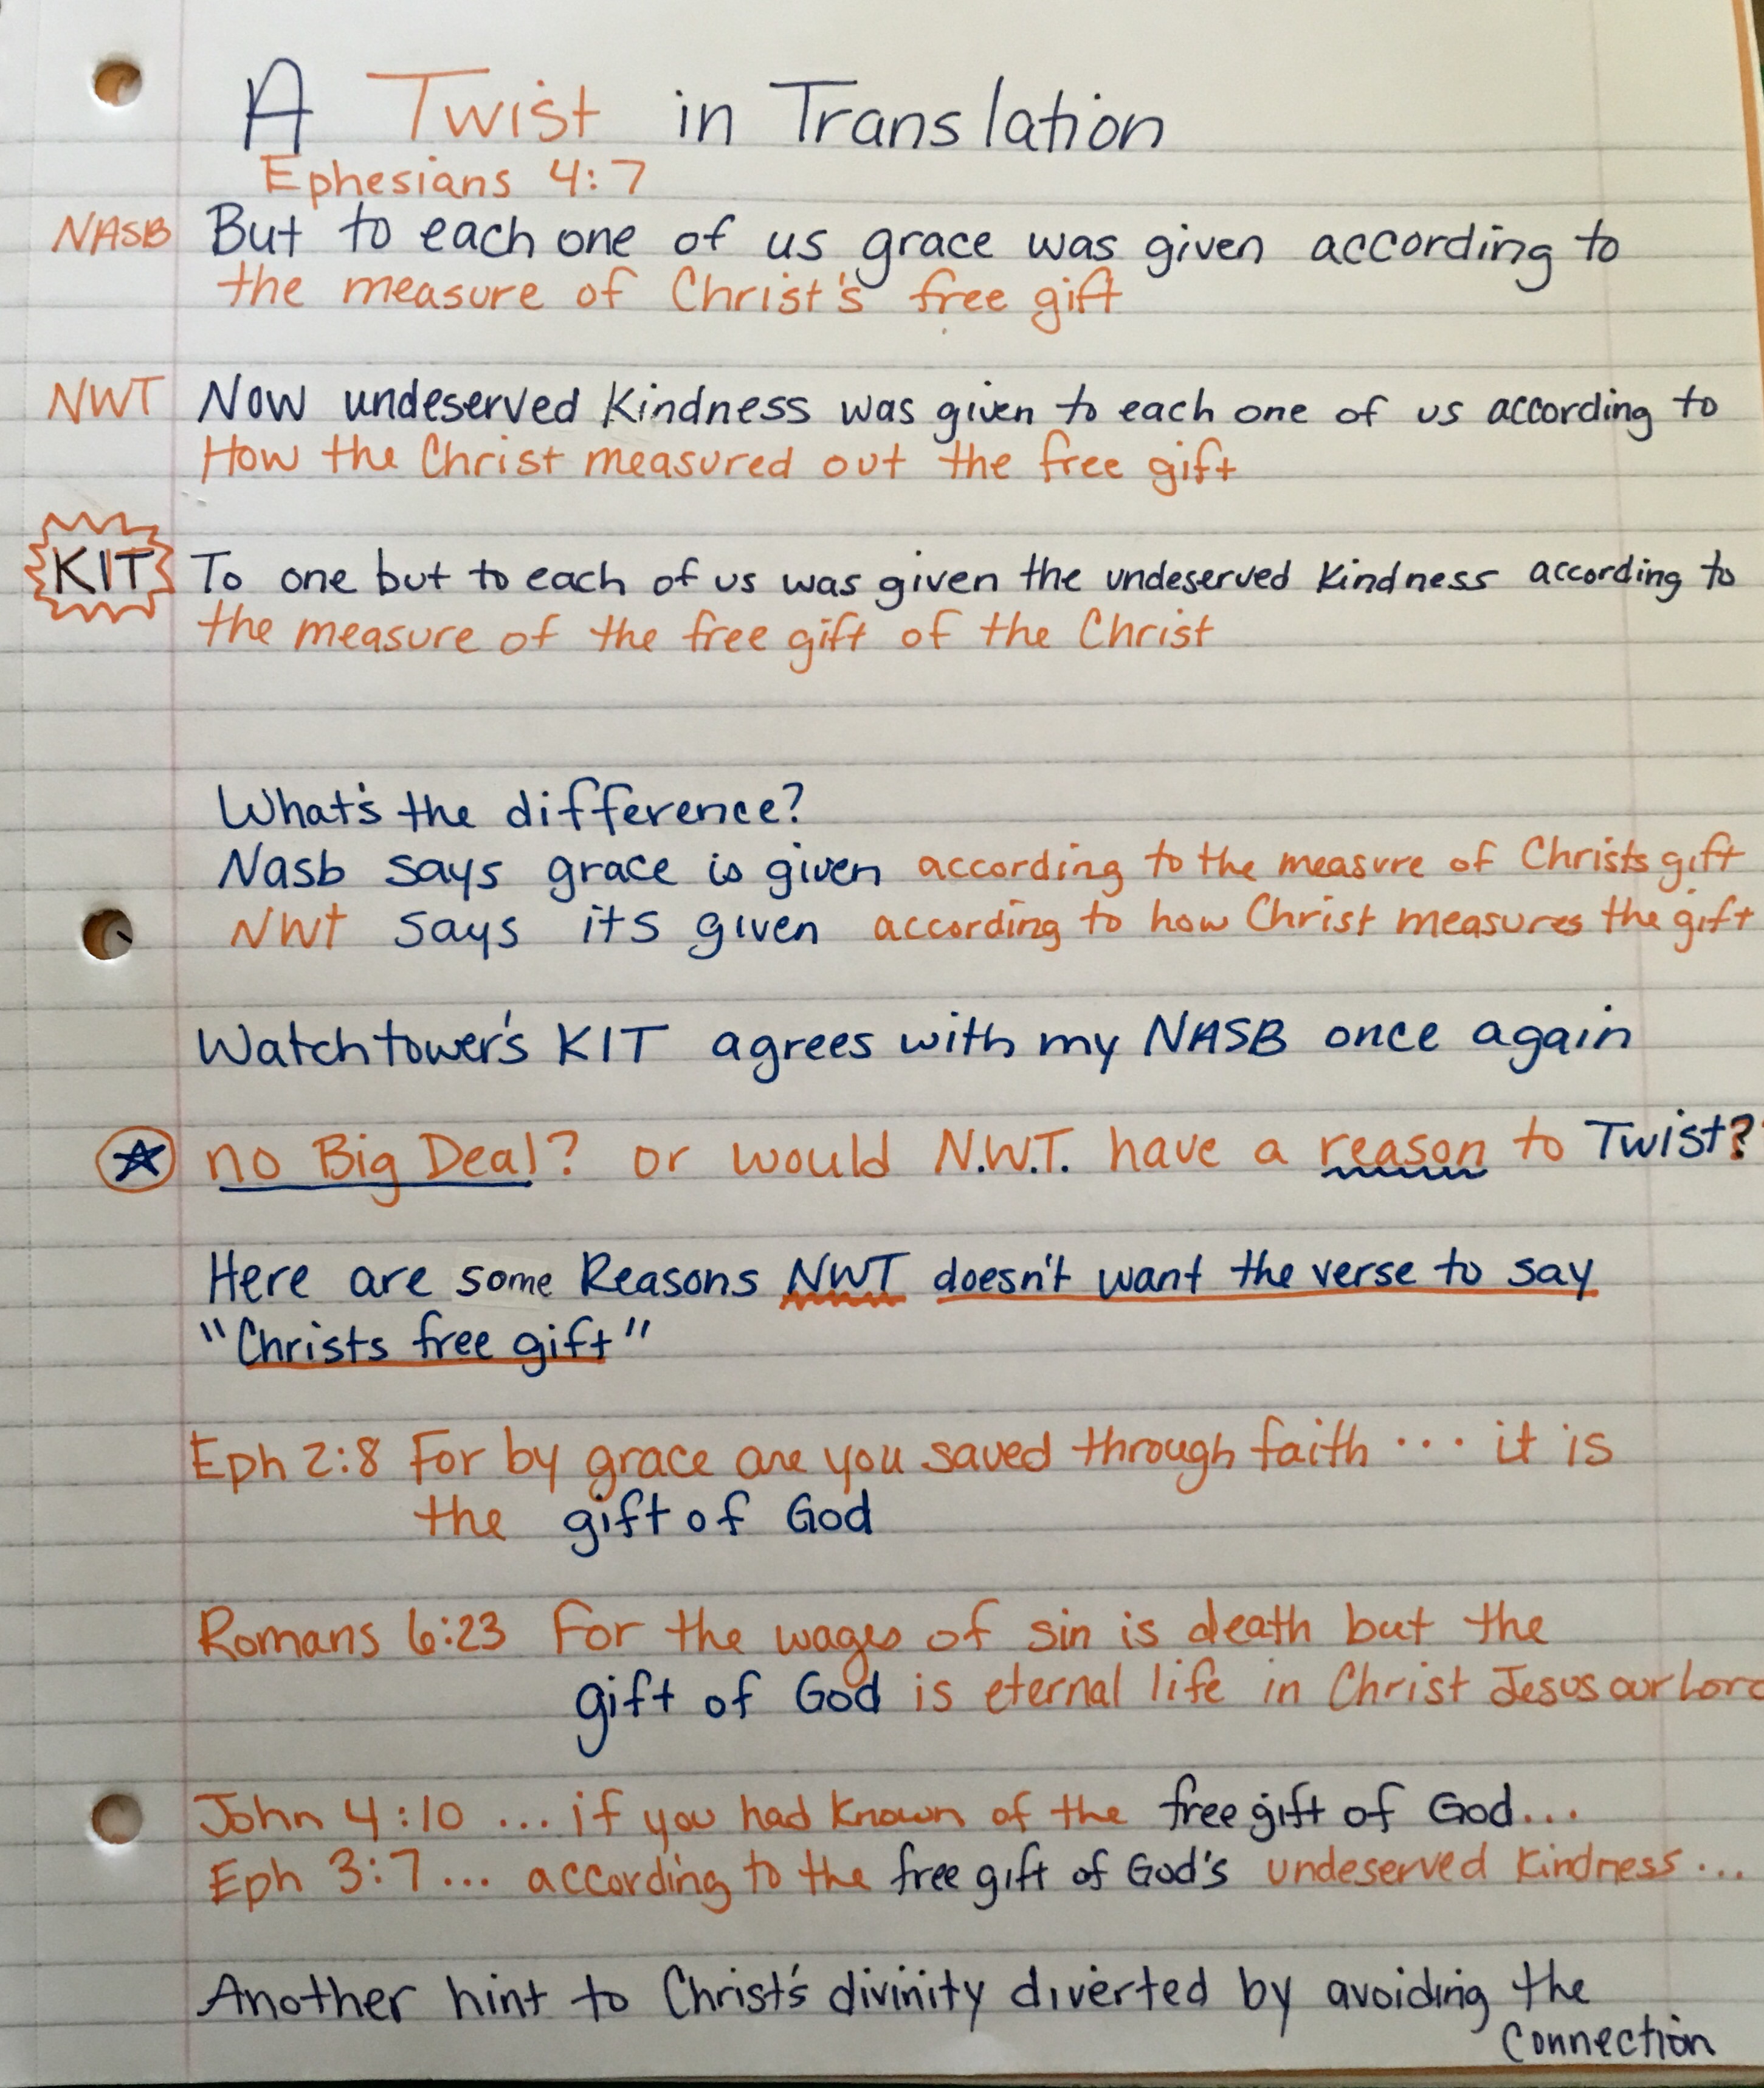 A Twist in Translation
Ephesians 4:7
NASB But to each one of us grace was given according to
the measure of Christ's free gift
NWT Now undeserved Kindness was given to each one of us according to
How the Christ measured out the free gift
KIT To one but to each of us was given the undeserved kindness according to
the measure of the free gift of the Christ
What's the difference?
Nasb says grace is given according to the measure of Christs gift
NWt says its given according to how Christ measures the gift
Watchtower's KIT agrees with my NASB once again
no Big Deal? or would N.W.T. have a reason to Twist?
Here are some Reasons NWT doesn't want the verse to say
"Christs free gift"
Eph 2:8 For by grace are you saved through faith ... it is
the gift of God
Romans 6:23 For the wages of sin is death but the
gift of God is eternal life in Christ Jesus our Lord
John 4:10 ... if you had known of the free gift of God...
Eph 3:7... according to the free gift of God's undeserved kindness...
Another hint to Christ's divinity diverted by avoiding the
connection